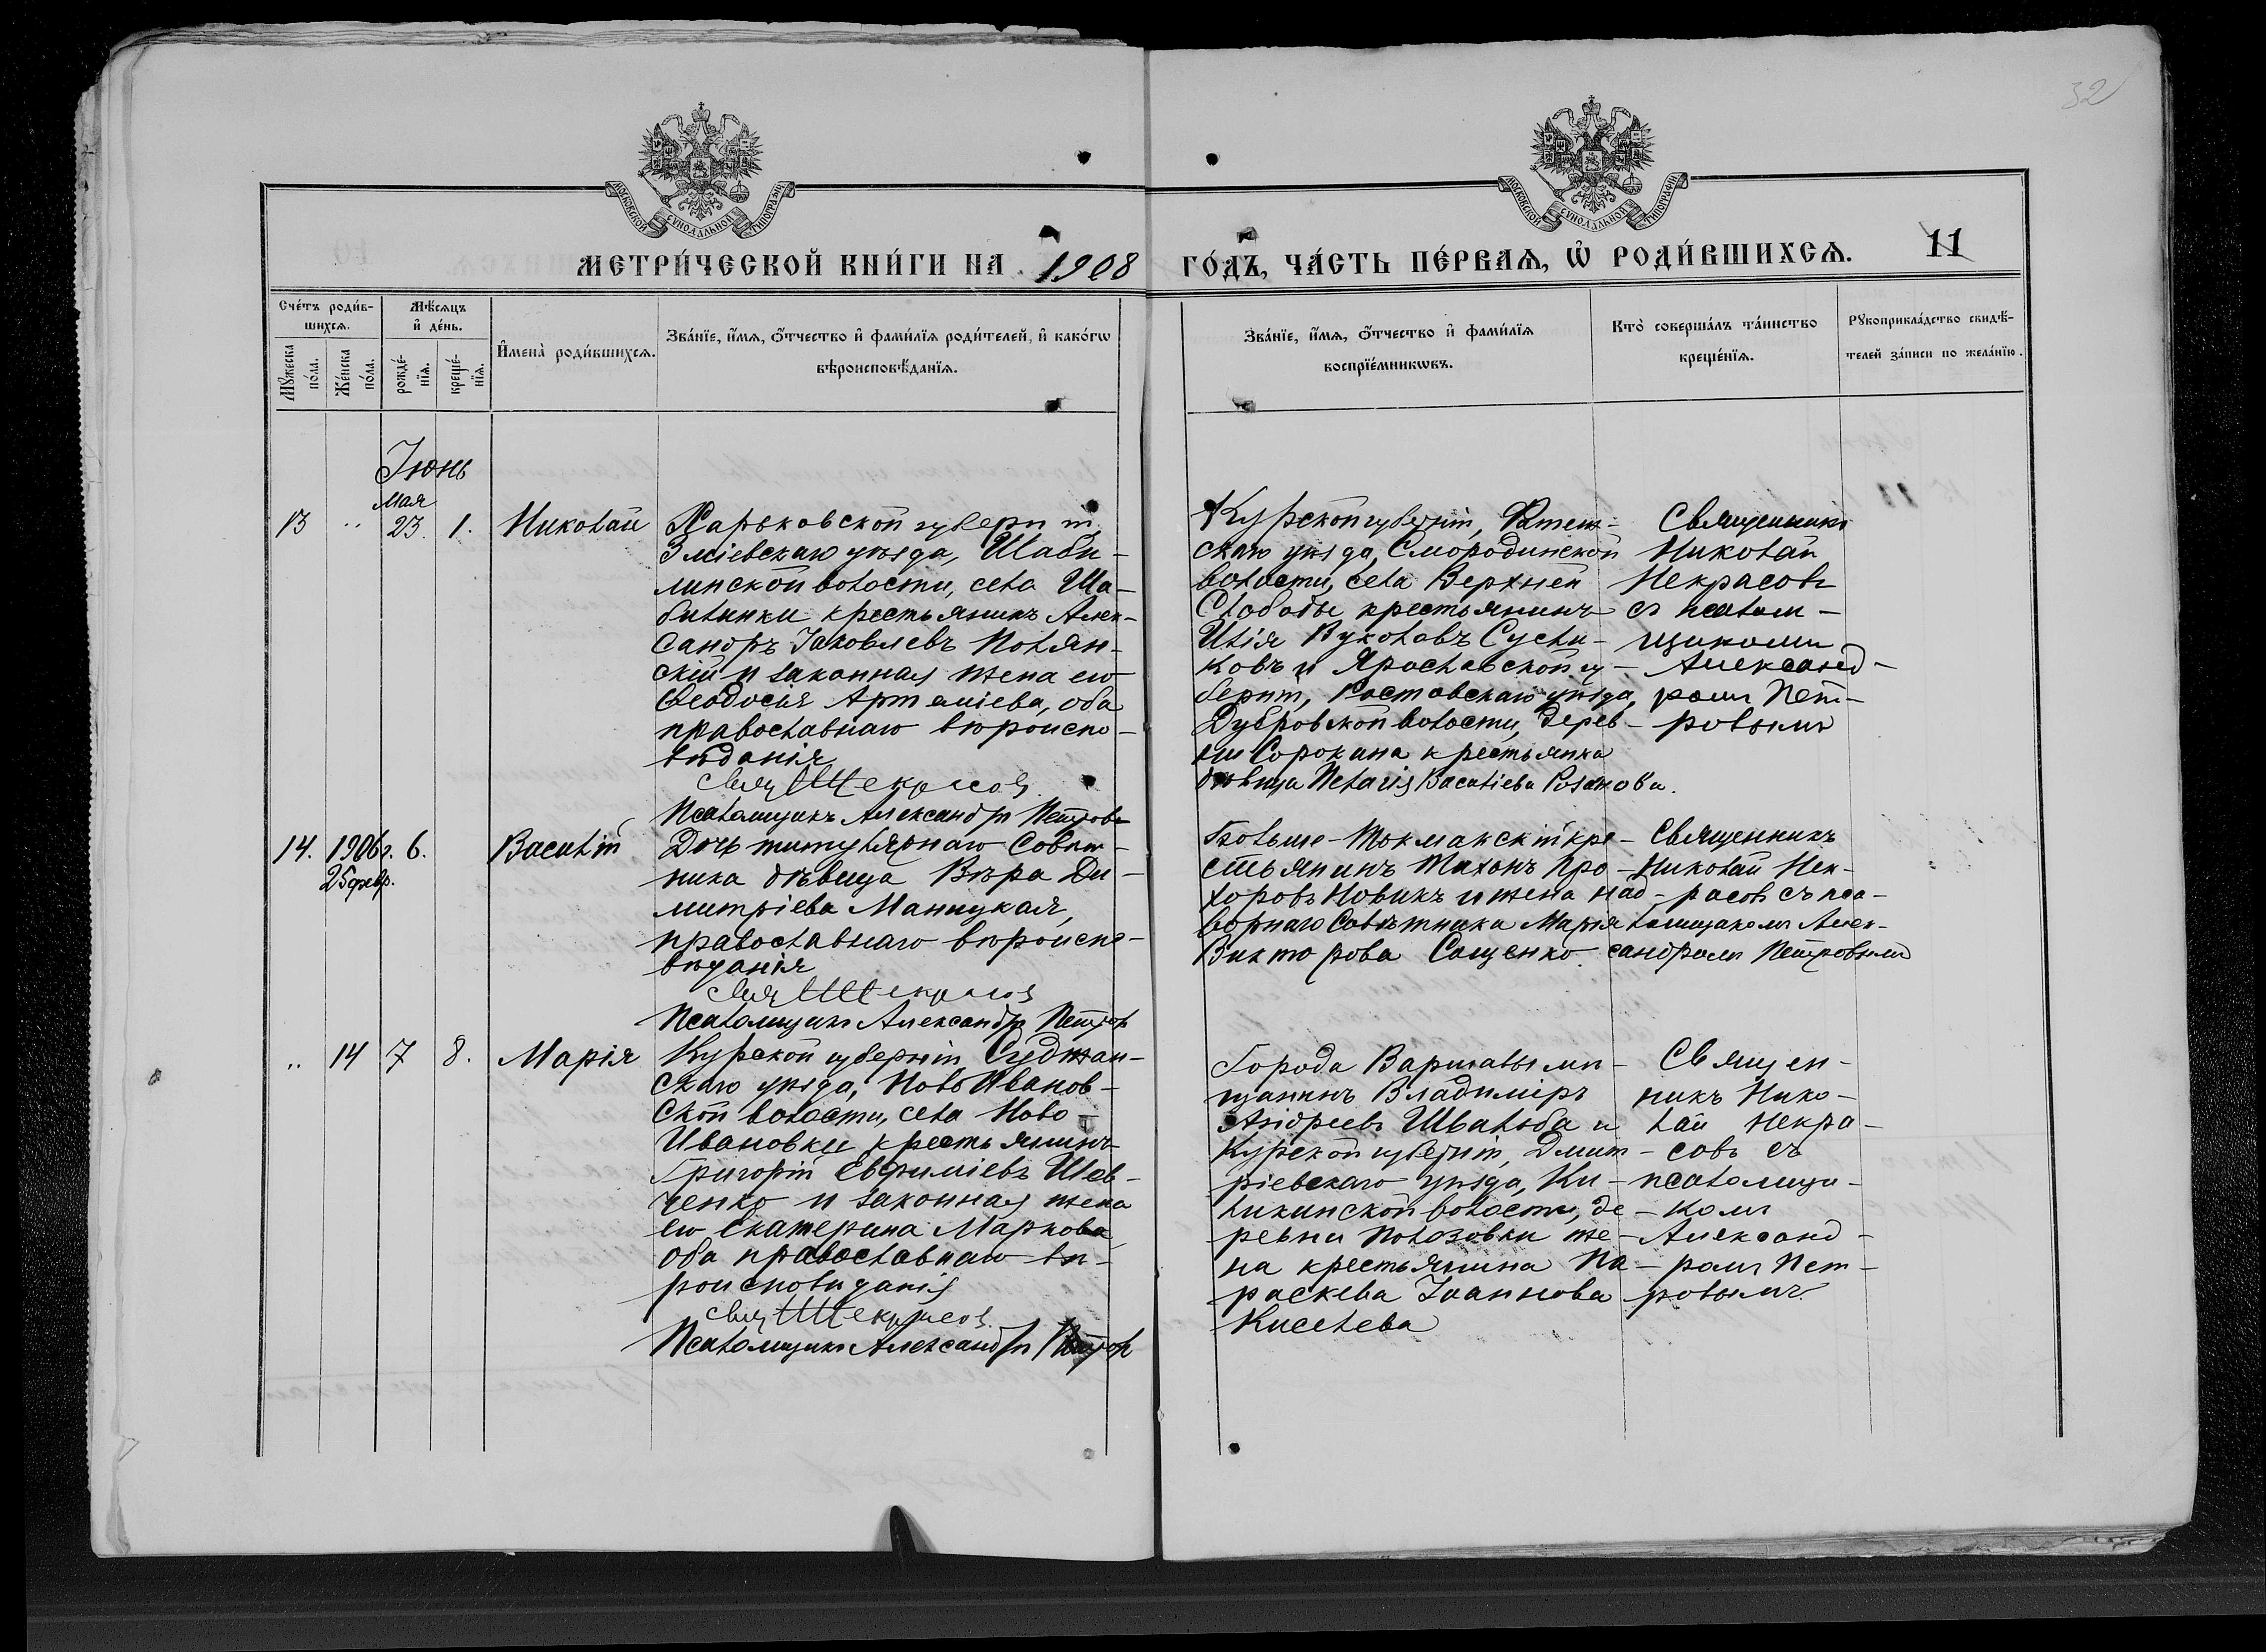 32
МОСКОВСКОЙ СѴНОДАЛЬНОЙ ТИПОГРАФІИ
МОСКОВСКОЙ СѴНОДАЛЬНОЙ ТИПОГРАФІИ
МЕТРИ́ЧЕСКОЙ КНИ́ГИ НА 1908
ГО́ДЪ, ЧА́СТЬ ПЕ́РВАѦ, Ѡ҆ РОДИ́ВШИХСѦ.
11
Счéтъ роди́в-
шихсѧ.
Мꙋ́жеска
по́ла.
Же́нска
по́ла.
Мѣ́сѧцъ
и҆ де́нь.
рожде́-
нїѧ.
креще́-
нїѧ.
И҆мена̀ роди́вшихсѧ.
Зва́нїе, и҆́мѧ, ѻ҆́тчество и҆ фами́лїѧ роди́телей, и҆ како́гѡ
вѣроисповѣ́данїѧ.
Зва́нїе, и҆́мѧ, ѻ҆́тчество и҆ фами́лїѧ
воспрїе́мникѡвъ.
Кто̀ соверша́лъ та́инство
креще́нїѧ.
Рꙋкоприкла́дство свидѣ́-
телей за́писи по жела́нїю.
Іюнь
Мая
13 " 23. 1. Николай
Харьковской губерніи
Зміевскаго уѣзда, Шабе-
линской волости, села Ша-
билинки крестьянинъ Алек-
сандръ Іаковлевъ Полян-
скій и законная жена его
Ѳеодосія Артеміева, оба
православнаго вѣроиспо-
вѣданія
Свящ Н Некрасов
Псаломщикъ Александръ Петровъ
Курской губерніи, Фатеж-
скаго уѣзда, Смородинской
волости, села Верхней
Слободы крестьянинъ
Илія Вуколовъ Сусли-
ковъ и Ярославской гу-
берніи, Ростовскаго уѣзда,
Дубровской волости, дерев-
ни Сорокина крестьянка
дѣвица Пелагія Васильева Розанова.
Священникъ
Николай
Некрасовъ
съ псалом-
щикомъ
Александ-
ромъ Пет-
ровымъ
14. 1906 г. 6. Василій
25 февр.
Дочь титулярнаго Совѣт-
ника дѣвица Вѣра Ди-
митріева Маницкая,
православнаго вѣроиспо-
вѣданія
Свящ Н Некрасов
Псаломщикъ Александръ Петровъ
Больше-Токмакскій кре-
стьянинъ Тихонъ Про-
хоровъ Новикъ и жена над-
ворнаго Совѣтника Марія
Викторова Сащенко.
Священникъ
Николай Нек-
расовъ съ пса-
ломщикомъ Алек-
сандромъ Петровымъ
" 14 7 8. Марія
Курской губерніи Суджан-
скаго уѣзда, Ново Иванов-
ской волости, села Ново-
Ивановки крестьянинъ
Григорій Евфиміевъ Шев-
ченко и законная жена
его Екатерина Маркова
оба православнаго вѣ-
роисповѣданія
Свящ Н Некрасов.
Псаломщикъ Александръ Петровъ
Города Варшавы мѣ-
щанинъ Владиміръ
Андреевъ Швальба и
Курской губерніи, Дмит-
ріевскаго уѣзда, Ки-
ликинской волости, де-
ревни Полозовки же-
на крестьянина Па-
раскева Іоаннова
Киселева
Священ-
никъ Нико-
лай Некра-
совъ съ
псаломщи-
комъ
Александ-
ромъ Пет-
ровымъ